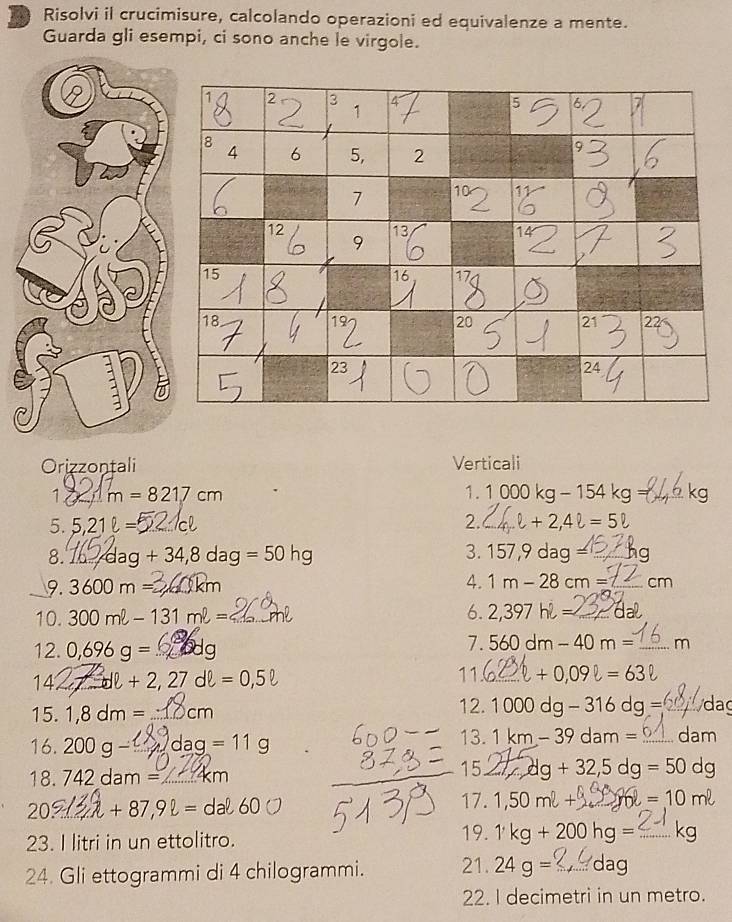 Risolvi il crucimisure, calcolando operazioni ed equivalenze a mente.
Guarda gli esempi, ci sono anche le virgole.
1 8 2 2 3 1 4 7 5 5 6 2 7 1
8 4 6 5, 2 9 3, 6
6 7 10 2 11 6 9
12 6, 9 13 6 14 2, 7 3
15 1 8, 16 1 17 8, 9
18 7, 4 19 2 20 5 1 21 3, 22 9
5 23 1 0 0 24 4
Orizzontali
1 82,17 m = 8217 cm
5. 5,21 ℓ = 521 cℓ
8. 465,2 dag + 34,8 dag = 50 hg
9. 3600 m = 3,6 km
10. 300 mℓ – 131 mℓ = 269 mℓ
12. 0,696 g = 6,96 dg
14 2,73 dℓ + 2, 27 dℓ = 0,5 ℓ
15. 1,8 dm = 18 cm
16. 200 g – 18,9 dag = 11 g
18. 742 dam = 7,42 km
20 513,9 ℓ + 87,9 ℓ = daℓ 60
23. I litri in un ettolitro.
24. Gli ettogrammi di 4 chilogrammi.
600 – –
87,9 =
513,9
Verticali
1. 1 000 kg – 154 kg = 846 kg
2. 2,6 ℓ + 2,4 ℓ = 5 ℓ
3. 157,9 dag = 15,79 hg
4. 1 m – 28 cm = 72 cm
6. 2,397 hℓ = 23,97 daℓ
7. 560 dm – 40 m = 16 m
11. 62,91 ℓ + 0,09 ℓ = 63 ℓ
12. 1 000 dg – 316 dg = 6,84 dag
13. 1 km – 39 dam = 61 dam
15 17,5 dg + 32,5 dg = 50 dg
17. 1,50 mℓ + 8,50 mℓ = 10 mℓ
19. 1 kg + 200 hg = 21 kg
21. 24 g = 2,4 dag
22. I decimetri in un metro.